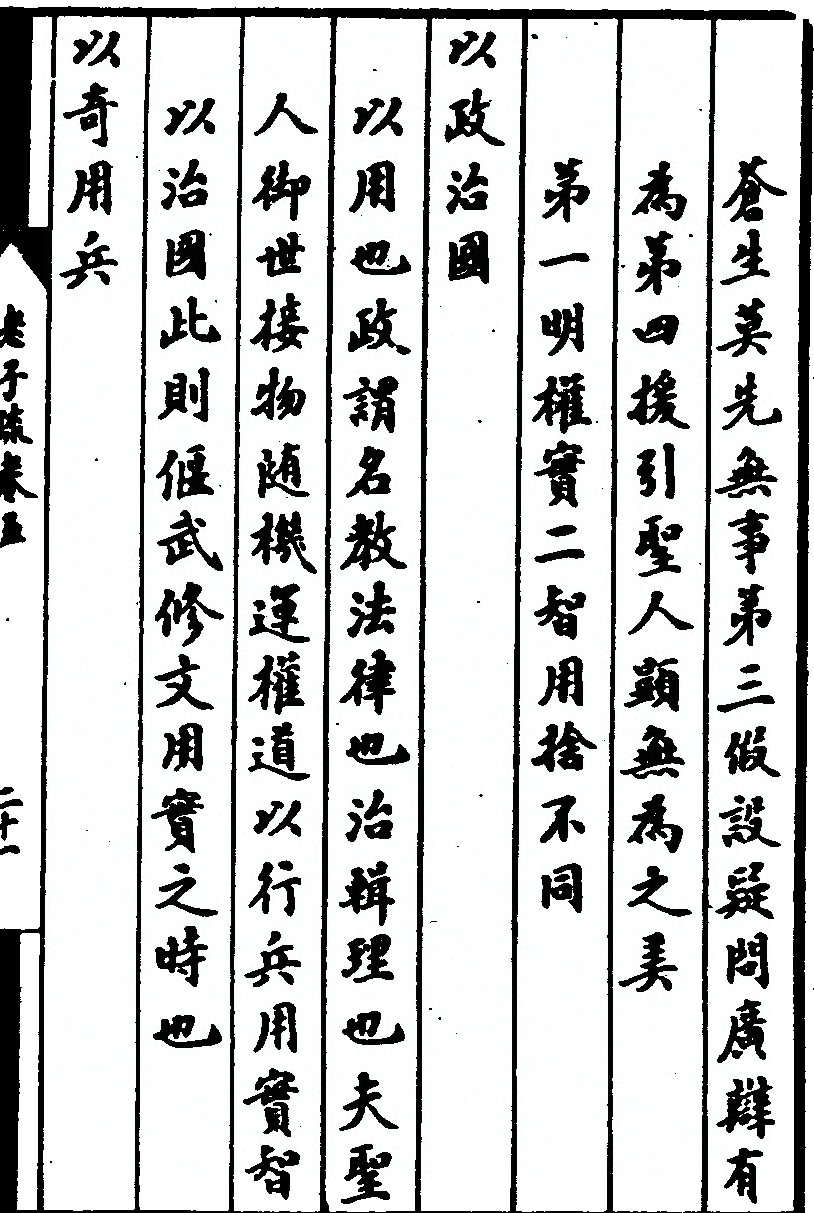 蒼生莫先無事第三假設疑問廣辯有
為第四援引聖人顯無為之美
第一明權實二智用捨不同
以政治國
以用也政謂名教法律也治輯理也夫聖
人御世接物随機運權道以行兵用實智
以治國此則偃武修文用實之時也
以奇用兵
老子疏卷五
二十一